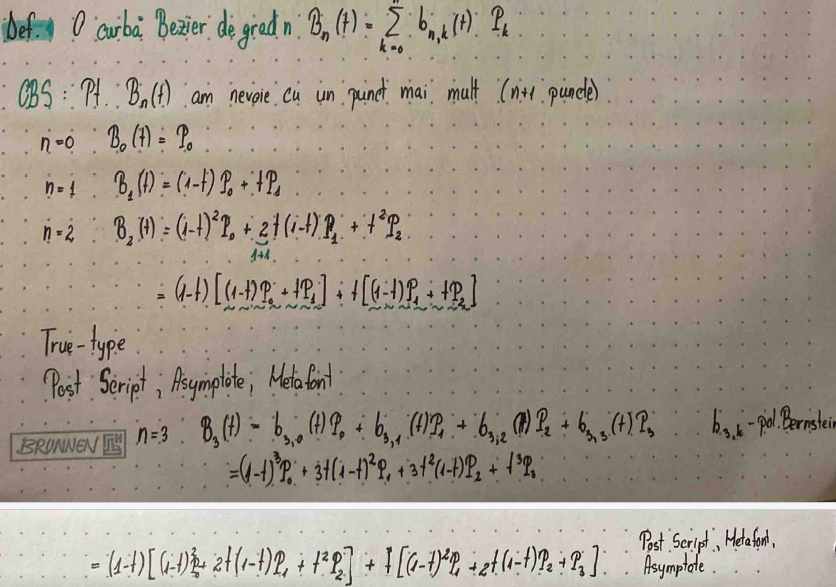 Def. O curbă Bezier de grad n B_n(t) = Σ_{k=0}^{n} b_{n,k}(t) P_k
OBS: Pt. B_n(t) am nevoie cu un punct mai mult (n+1 puncte)
n=0 B_0(t) = P_0
n=1 B_1(t) = (1-t)P_0 + tP_1
n=2 B_2(t) = (1-t)^2 P_0 + 2t(1-t)P_1 + t^2 P_2
1+1
= (1-t)[(1-t)P_0 + tP_1] + t[(1-t)P_1 + tP_2]
True-type
Post Script, Asymptote, Metafont
BRUNNEN n=3 B_3(t) = b_{3,0}(t)P_0 + b_{3,1}(t)P_1 + b_{3,2}(t)P_2 + b_{3,3}(t)P_3 b_{3,k} - pol. Bernstein
= (1-t)^3 P_0 + 3t(1-t)^2 P_1 + 3t^2(1-t)P_2 + t^3 P_3
= (1-t)[(1-t)^2 P_0 + 2t(1-t)P_1 + t^2 P_2] + t[(1-t)^2 P_1 + 2t(1-t)P_2 + P_3] Post Script, Metafont,
Asymptote